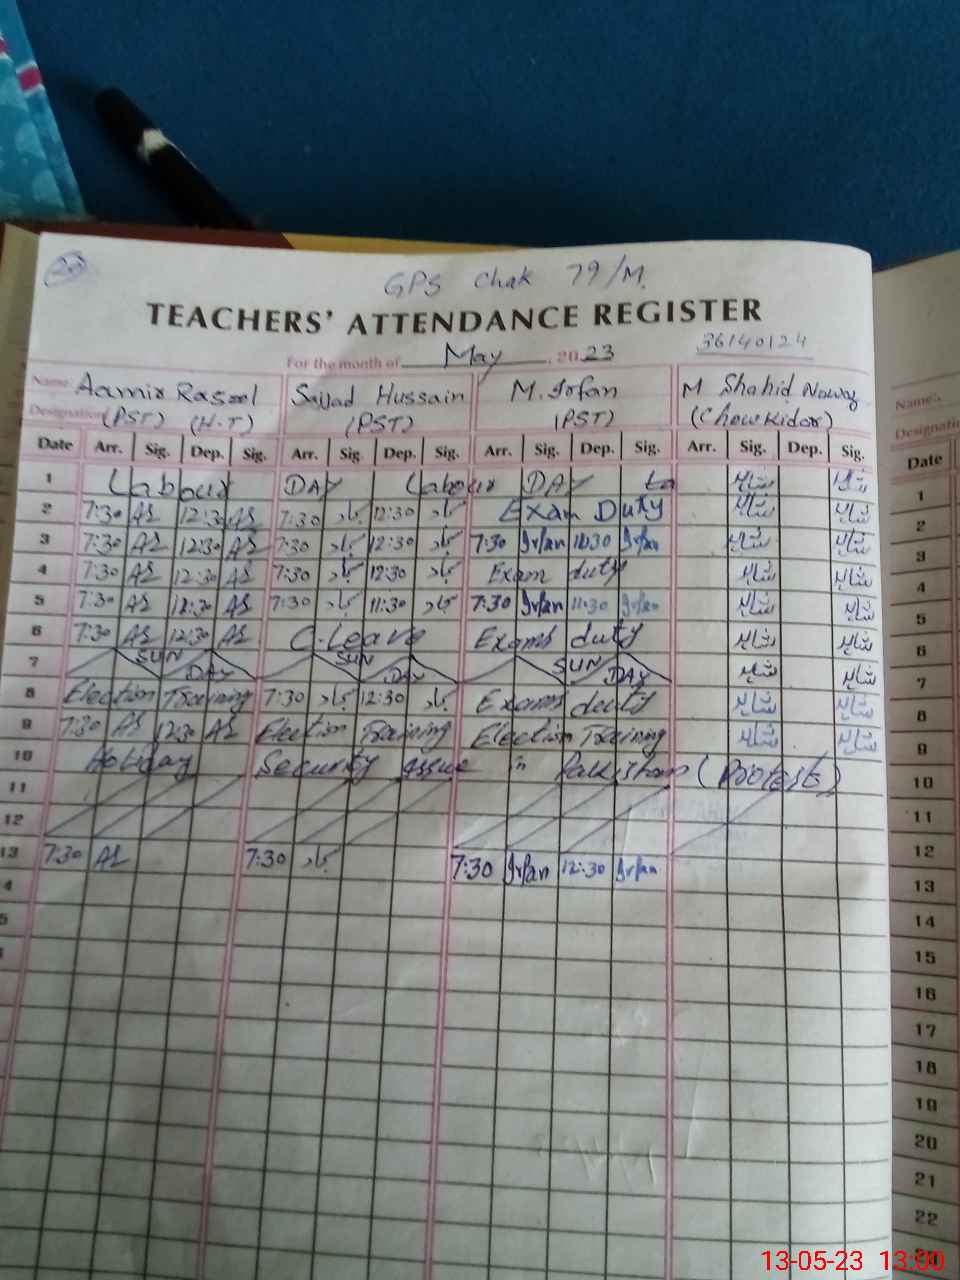 20
GPS Chak 79/M.
TEACHERS' ATTENDANCE REGISTER
For the month of May, 2023 36140124
Name: Aamir Rasool Sajjad Hussain M. Irfan M Shahid Nawaz
Designation (PST) (H.T) (PST) (PST) (Chowkidar)
Date Arr. Sig. Dep. Sig. Arr. Sig. Dep. Sig. Arr. Sig. Dep. Sig. Arr. Sig. Dep. Sig.
1 Labour DAY Labour DAY شاہد شاہد
2 7:30 AS 12:30 AS 7:30 سجاد 12:30 سجاد Exam Duty شاہد شاہد
3 7:30 AS 12:30 AS 7:30 سجاد 12:30 سجاد 7:30 Irfan 12:30 Irfan شاہد شاہد
4 7:30 AS 12:30 AS 7:30 سجاد 12:30 سجاد Exam duty شاہد شاہد
5 7:30 AS 11:30 AS 7:30 سجاد 11:30 سجاد 7:30 Irfan 11:30 Irfan شاہد شاہد
6 7:30 AS 12:30 AS C.Leave Exams duty شاہد شاہد
7 SUN DAY SUN DAY SUN DAY شاہد شاہد
8 Election Training 7:30 سجاد 12:30 سجاد Exams duty شاہد شاہد
9 7:30 AS 12:30 AS Election Training Election Training شاہد شاہد
10 Holiday Security issue in Pakistan (Protests)
11
12
13 7:30 AS 7:30 سجاد 7:30 Irfan 12:30 Irfan
4
5
Name:
Designation
Date
1
2
3
4
5
6
7
8
9
10
11
12
13
14
15
16
17
18
19
20
21
22
13-05-23 13:00